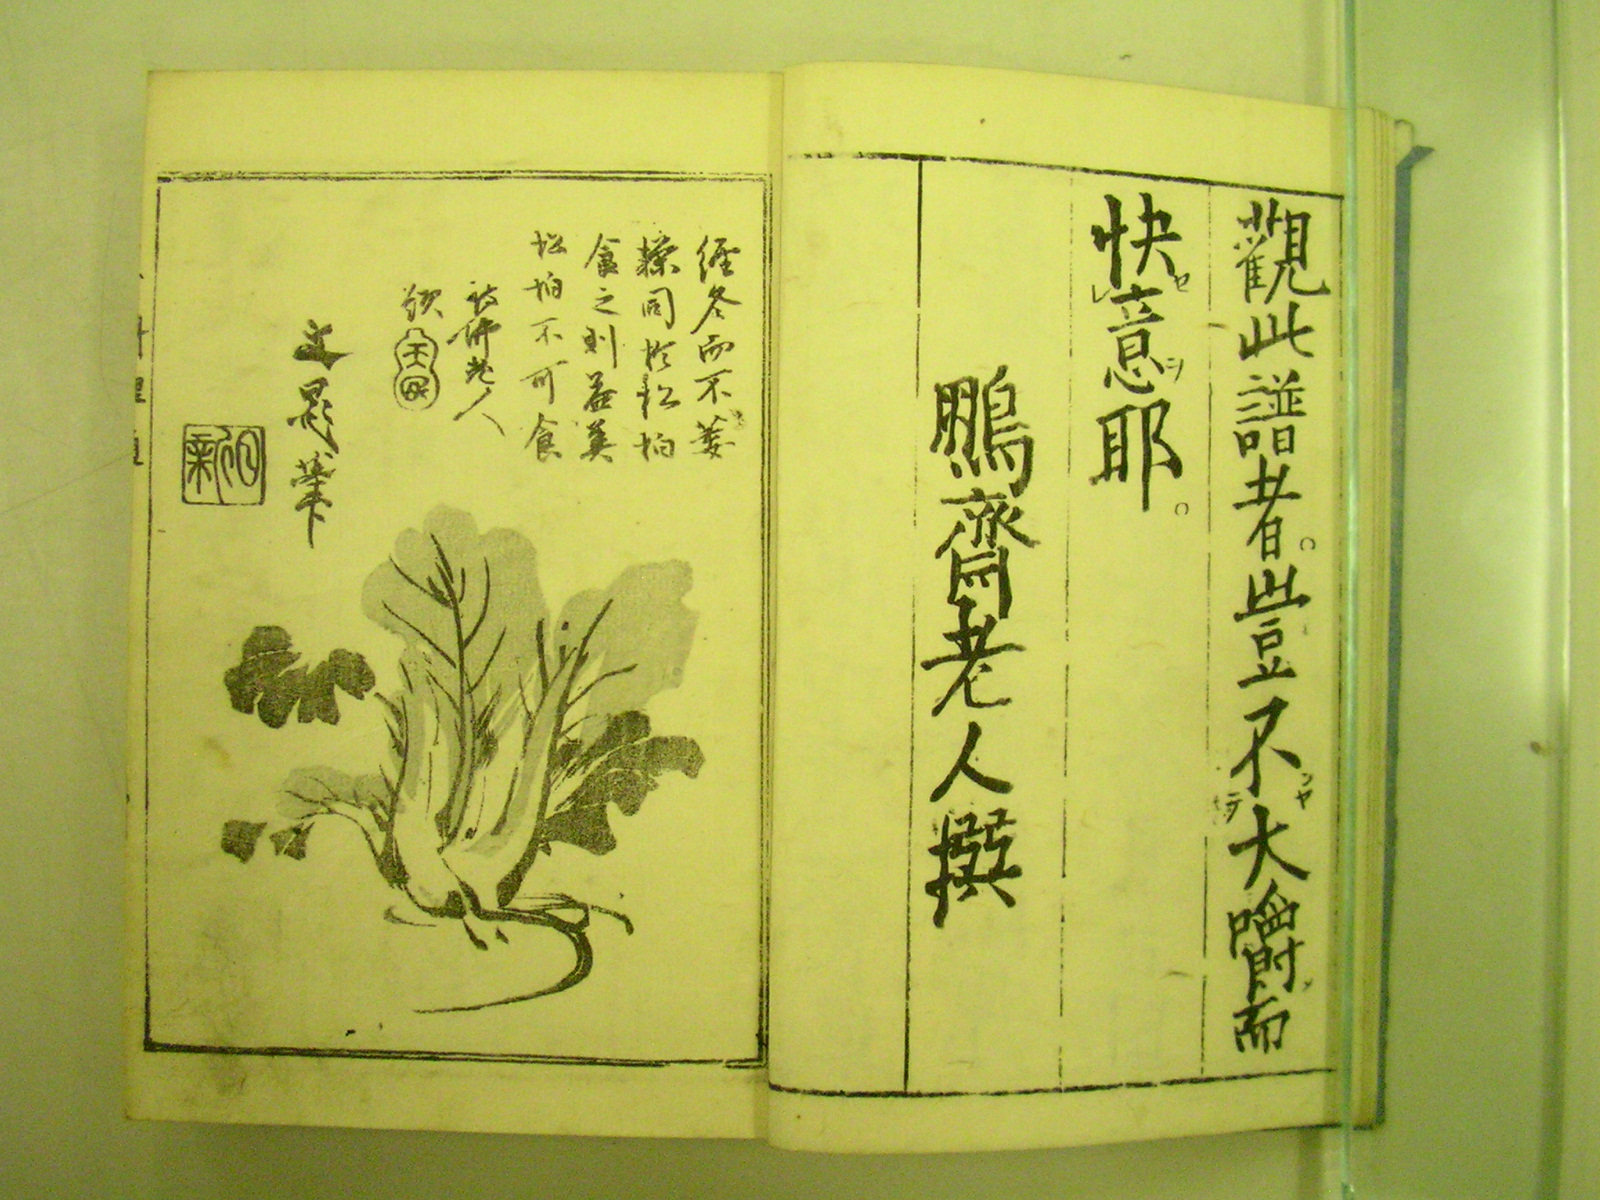 觀此譜者。豈不大嚼而
快意耶。
鵬齋老人撰
經冬而不萎
操同於松柏
食之則益美
松柏不可食
詩佛老人
天民
文晁筆